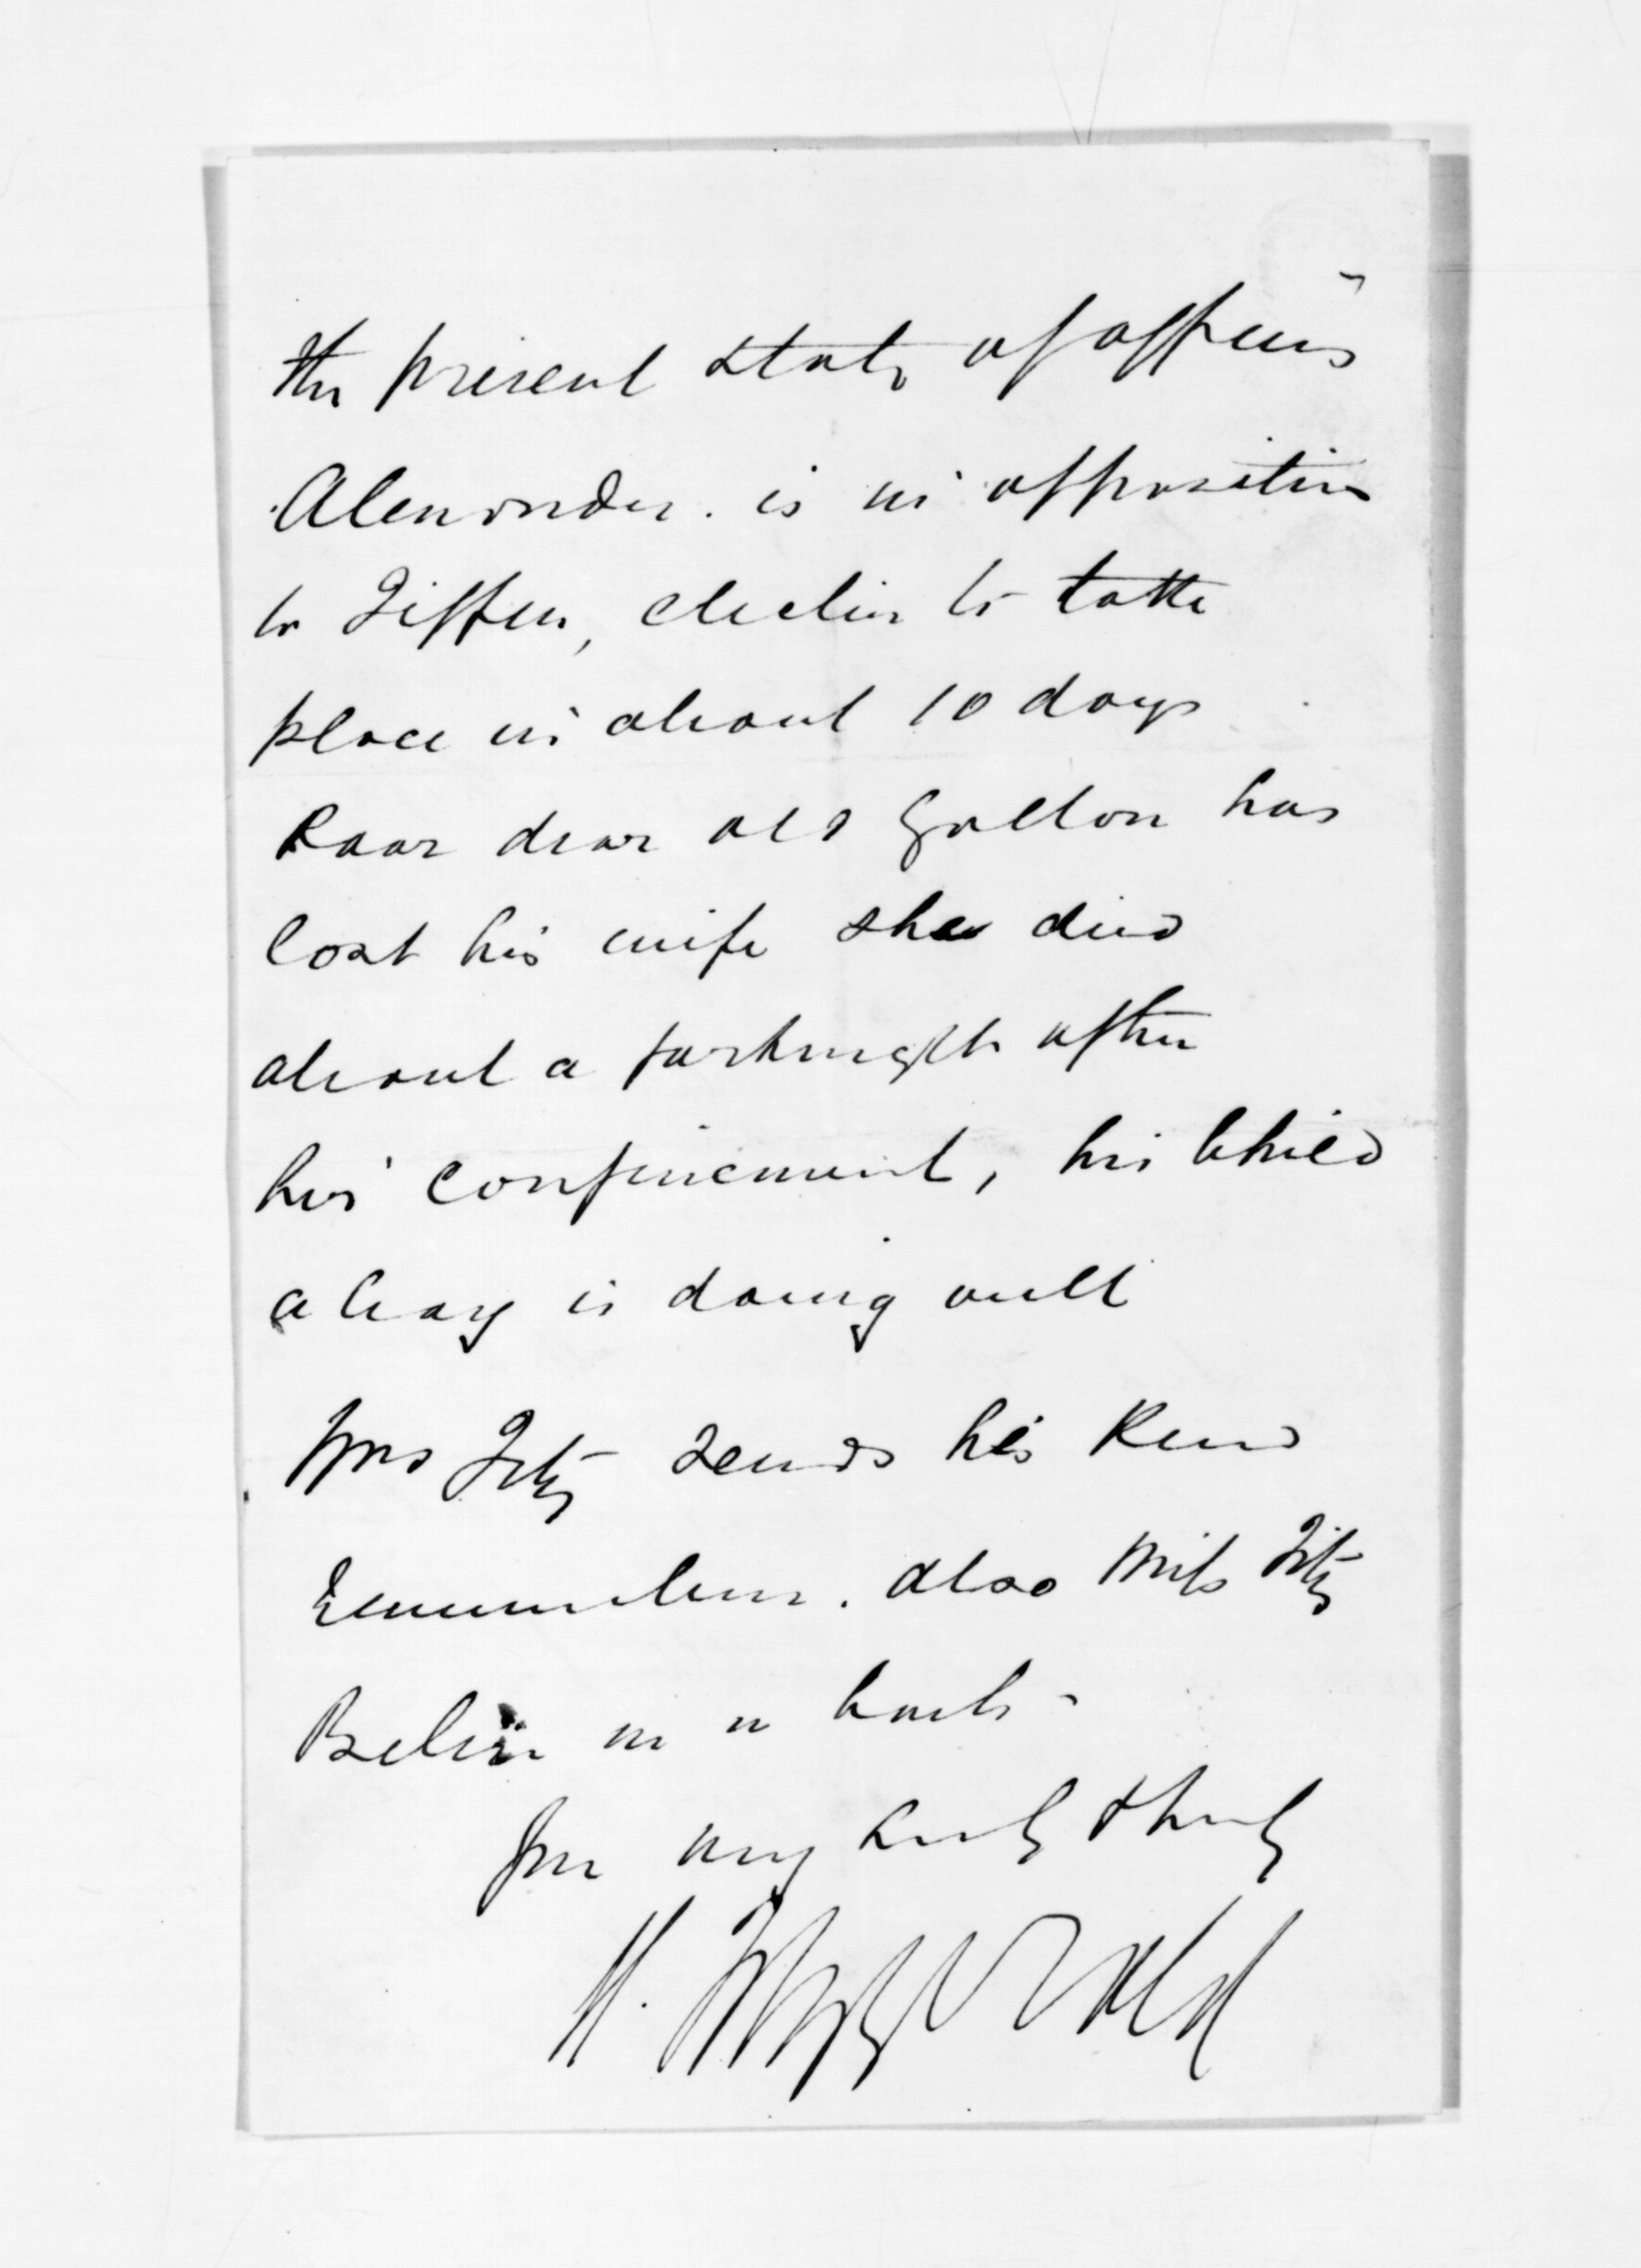 the present state of affairs
Alexander. is in opposition
to Tiffen, election to take
place in about 10 days
Poor dear old Gollan has
lost his wife she died
about a fortnight after
her confinement, his child
a boy is doing well
Mrs Fitz sends her kind
remembrances. also Miss Fitz
Believe me
Yours very truly
H. Fitzgerald